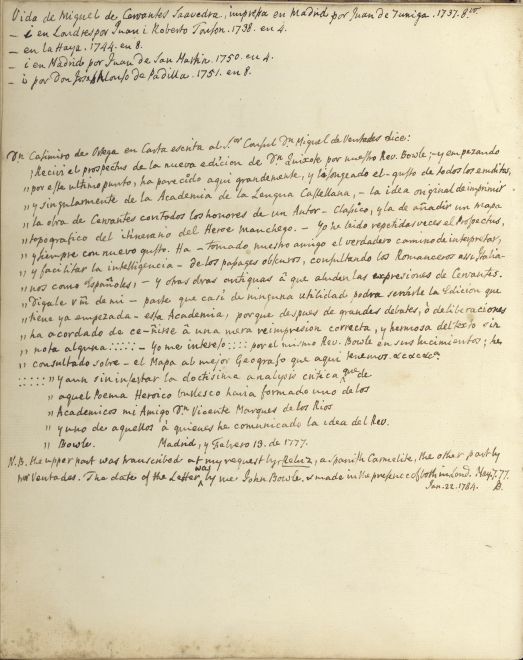 Vida de Miguel de Cervantes Saavedra, impressa en Madrid por Juan de Zuniga. 1737. 8vo.
— i en Londres por Juan i Roberto Tonson. 1738. en 4.
— en la Haya. 1744. en 8.
— i en Madrid por Juan de San Martin. 1750. en 4.
— o por Don Joseph Alonso de Padilla. 1751. en 8.
Dn Casimiro de Ortega en Carta escrita al Sor Consul Dn Miguel de Ventades dice:
„ Recivi el prospectus de la nueva edicion de Dn Quixote por nuestro Rev. Bowle; — y empezando
„ por este ultimo punto, ha parecido aqui grandemente, y lisongeado el gusto de todos los eruditos,
„ y singularmente de la Academia de la Lengua Castellana, — la idea original de imprimir
„ la obra de Cervantes con todos los honores de un Autor - Clasico, y la de añadir un mapa
„ topografico del itinerario del Heroe Manchego. — Yo he leido repetidas veces el Prospectus,
„ y siempre con nuevo gusto. Ha - tomado nuestro amigo el verdadero camino de interpretar,
„ y facilitar la intelligencia - de los pasages obscuros, consultando los Romanceros assi Italia-
„ nos como Españoles, — y otras obras antiguas à que aluden las expresiones de Cervantes.
„ Digale Vm de mi — parte que casi de ninguna utilidad podra servirle la Edicion que
„ tiene ya empezada - esta Academia, porque despues de grandes debates, ò deliberaciones
„ ha acordado de ce-ñirse à una mera reimpresion correcta, y hermosa del texto sin
„ nota alguna ::::: — Yo me intereso :::: por el mismo Rev. Bowle en sus lucimientos; he
„ consultado sobre - el Mapa al mejor Geografo que aqui tenemos &c&c&c.
:::::: „ y aun sin insertar la doctisima analysis critica que de
„ aquel Poema Heroico burlesco havia formado uno de los
„ Academicos mi Amigo Dn Vicente Marques de los Rios
„ y uno de aquellos à quienes he comunicado la idea del Rev.
„ Bowle. Madrid, y Febrero 13. de 1777.
N.B. the upper part was transcribed at my request by, a Spanish Carmelite, the other part by
Ventades. The date of the Letter was by me John Bowle. & made in the presence of both in Lond. May. 7. 77.
Jan. 22. 1784. B.